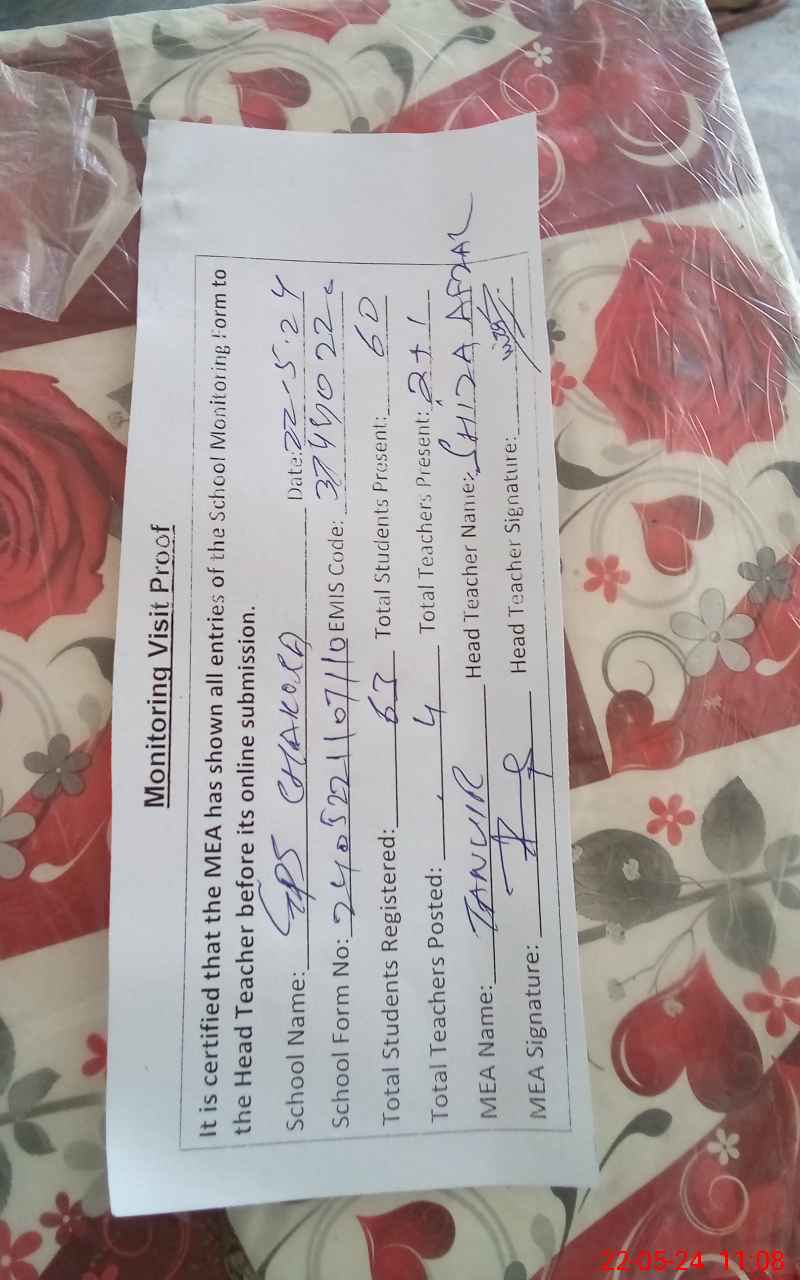 Monitoring Visit Proof
It is certified that the MEA has shown all entries of the School Monitoring Form to
the Head Teacher before its online submission.
School Name: GPS CHAKORA Date: 22-5-24
School Form No: 2405221107110 EMIS Code: 37440022
Total Students Registered: 63 Total Students Present: 60
Total Teachers Posted: 4 Total Teachers Present: 2+1
MEA Name: TANVIR Head Teacher Name: SHIZA AFZAL
MEA Signature: Head Teacher Signature:
22-05-24 11:08